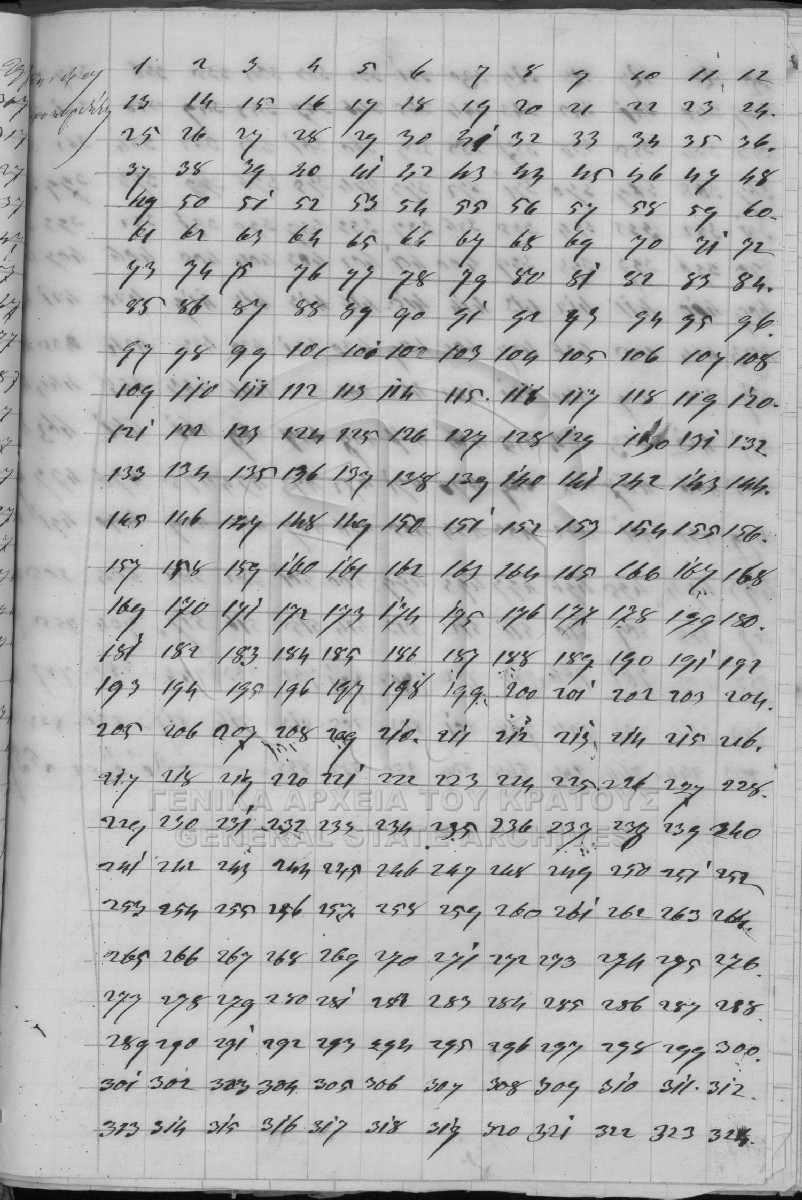 1 2 3 4 5 6 7 8 9 10 11 12
13 14 15 16 17 18 19 20 21 22 23 24.
25 26 27 28 29 30 31 32 33 34 35 36.
37 38 39 40 41 42 43 44 45 46 47 48
49 50 51 52 53 54 55 56 57 58 59 60.
61 62 63 64 65 66 67 68 69 70 71 72
73 74 75 76 77 78 79 80 81 82 83 84.
85 86 87 88 89 90 91 92 93 94 95 96.
97 98 99 100 101 102 103 104 105 106 107 108
109 110 111 112 113 114 115. 116 117 118 119 120.
121 122 123 124 125 126 127 128 129 130 131 132
133 134 135 136 137 138 139 140 141 142 143 144.
145 146 147 148 149 150 151 152 153 154 155 156.
157 158 159 160 161 162 163 164 165 166 167 168
169 170 171 172 173 174 175 176 177 178 179 180.
181 182 183 184 185 186 187 188 189 190 191 192
193 194 195 196 197 198 199 200 201 202 203 204.
205 206 207 208 209 210. 211 212 213 214 215 216.
217 218 219 220 221 222 223 224 225 226 227 228.
ΓΕΝΙΚΑ ΑΡΧΕΙΑ ΤΟΥ ΚΡΑΤΟΥΣ
229 230 231 232 233 234 235 236 237 238 239 240
GENERAL STATE ARCHIVES
241 242 243 244 245 246 247 248 249 250 251 252
253 254 255 256 257 258 259 260 261 262 263 264.
265 266 267 268 269 270 271 272 273 274 275 276.
277 278 279 280 281 282 283 284 285 286 287 288.
289 290 291 292 293 294 295 296 297 298 299 300.
301 302 303 304 305 306 307 308 309 310 311. 312.
313 314 315 316 317 318 319 320 321 322 323 324.